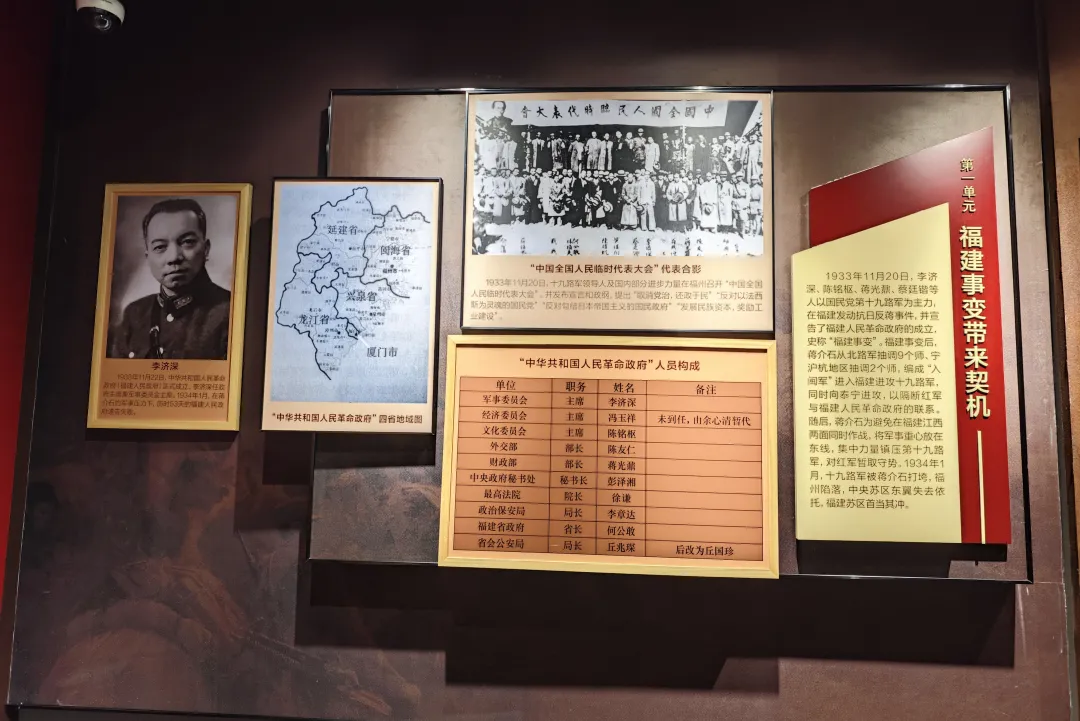 第一单元
福建事变带来契机
1933年11月20日，李济
深、陈铭枢、蒋光鼐、蔡廷锴等
人以国民党第十九路军为主力，
在福建发动抗日反蒋事件，并宣
告了福建人民革命政府的成立，
史称“福建事变”。福建事变后，
蒋介石从北路军抽调9个师、宁
沪杭地区抽调2个师，编成“入
闽军”进入福建进攻十九路军，
同时向泰宁进攻，以隔断红军
与福建人民革命政府的联系。
随后，蒋介石为避免在福建江西
两面同时作战，将军事重心放在
东线，集中力量镇压第十九路
军，对红军暂取守势。1934年1
月，十九路军被蒋介石打垮，福
州陷落，中央苏区东翼失去依
托，福建苏区首当其冲。
中國全國人民臨時代表大會
“中国全国人民临时代表大会”代表合影
1933年11月20日，十九路军领导人及国内部分进步力量在福州召开“中国全
国人民临时代表大会”，并发布宣言和政纲，提出“取消党治，还政于民”“反对以法西
斯为灵魂的国民党”“反对勾结日本帝国主义的国民政府”“发展民族资本，奖励工
业建设”。
“中华共和国人民革命政府”人员构成
单位 职务 姓名 备注
军事委员会 主席 李济深
经济委员会 主席 冯玉祥 未到任，由余心清暂代
文化委员会 主席 陈铭枢
外交部 部长 陈友仁
财政部 部长 蒋光鼐
中央政府秘书处 秘书长 彭泽湘
最高法院 院长 徐谦
政治保安局 局长 李章达
福建省政府 省长 何公敢
省会公安局 局长 丘兆琛 后改为丘国珍
延建省
闽海省
兴泉省
龙江省
厦门市
福州市
“中华共和国人民革命政府”四省地域图
李济深
1933年11月22日，中华共和国人民革命
政府（福建人民政府）正式成立，李济深任政
府主席兼军事委员会主席。1934年1月，在蒋
介石的军事压力下，历时53天的福建人民政
府遂告失败。